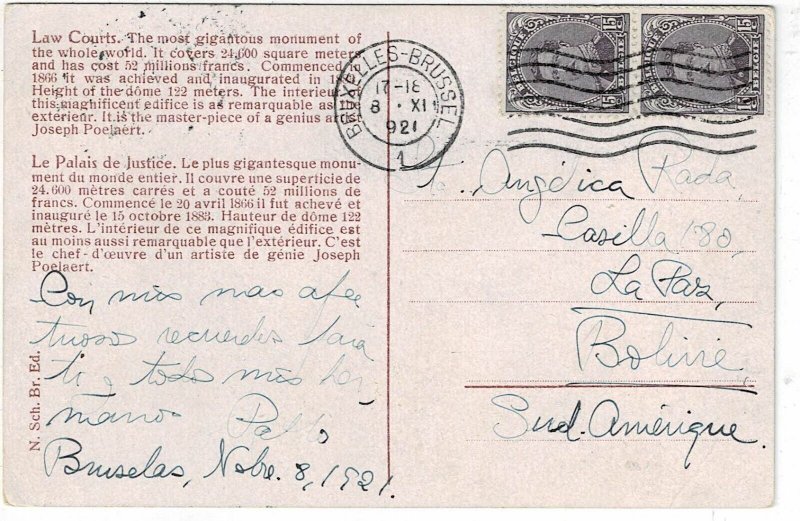 Law Courts. The most gigantous monument of
the whole world. It covers 24,600 square meters
and has cost 52 millions francs. Commenced
1866 it was achieved and inaugurated in
Height of the dôme 122 meters. The interieur
this magnificent edifice is as remarkable as the
extérieur. It is the master-piece of a genius
Joseph Poelaert.
Le Palais de Justice. Le plus gigantesque monu-
ment du monde entier. Il couvre une superficie de
24.600 mètres carrés et a couté 52 millions de
francs. Commencé le 20 avril 1866 il fut achevé et
inauguré le 15 octobre 1883. Hauteur de dôme 122
mètres. L'intérieur de ce magnifique édifice est
au moins aussi remarquable que l'extérieur. C'est
le chef-d'œuvre d'un artiste de génie Joseph
Poelaert.
Con mis mas afec
tuosos recuerdos para
ti y todos mis her
manos Pablo
Bruselas, Nobre. 8, 1921.
N. Sch. Br. Ed.
BRUXELLES-BRUSSEL
17-18
8 · XI
1921
1
BELGIQUE 15
15
Angélica Rada,
Casilla 180,
La Paz,
Bolivie,
Sud. Amérique.